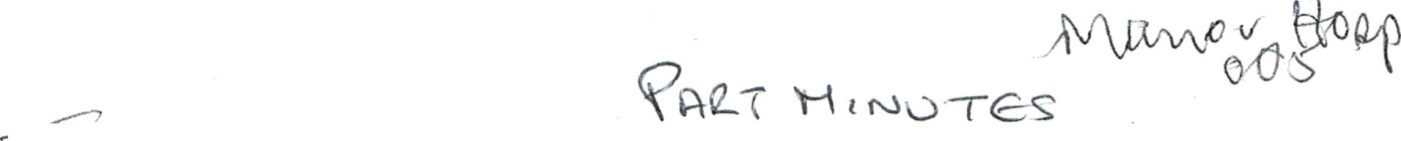 Manor Hosp
005
PART MINUTES